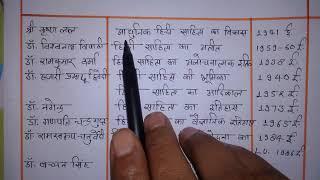 श्री कृष्ण लाल आधुनिक हिंदी साहित्य का विकास 1941 ई
डॉ. विश्वनाथ त्रिपाठी हिंदी साहित्य का अतीत 1959-60 ई
डॉ. रामकुमार वर्मा साहित्य का आलोचनात्मक 1938 ई
डॉ. हजारी प्रसाद द्विवेदी हिंदी साहित्य की भूमिका 1940 ई
साहित्य का आदिकाल 1952 ई
डॉ. नगेन्द्र साहित्य का इतिहास 1973 ई
डॉ. गणपति चन्द्र गुप्त का वैज्ञानिक इतिहास 1965 ई
डॉ. रामस्वरूप चतुर्वेदी का
डॉ. बच्चन सिंह